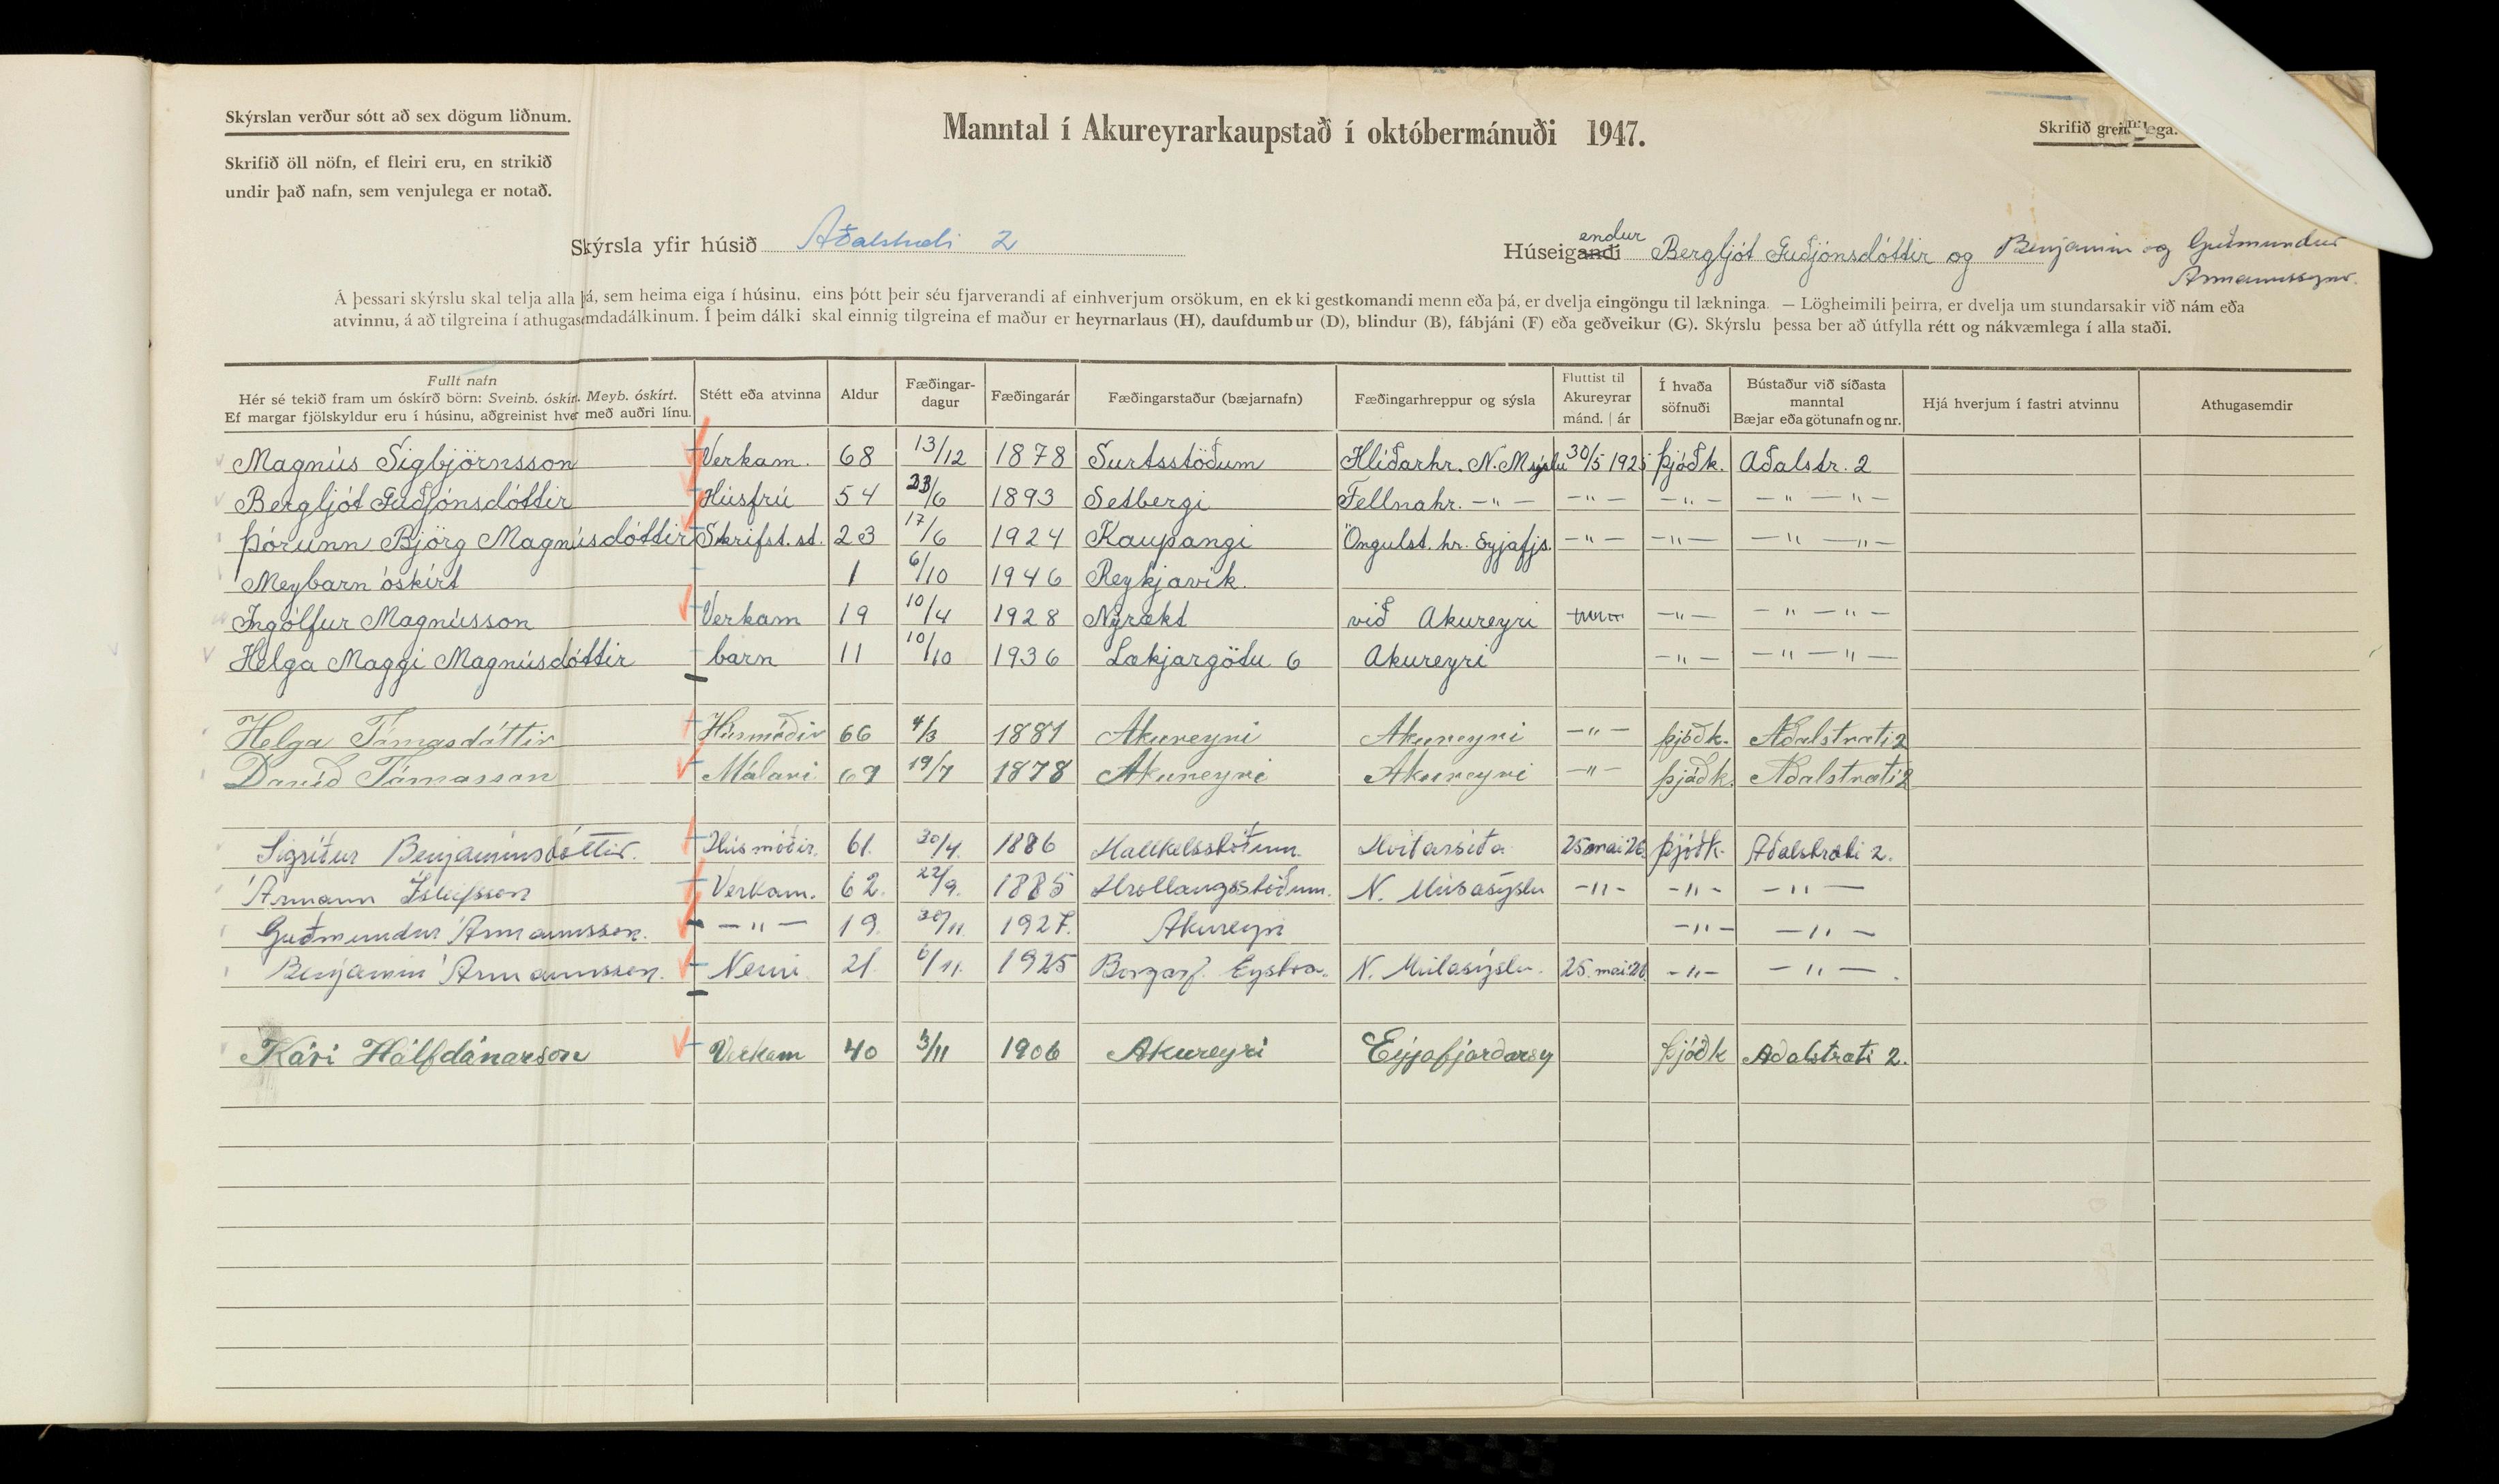 Skýrslan verður sótt að sex dögum liðnum.
Manntal í Akureyrarkaupstað í októbermánuði 1947.
Skrifið öll nöfn, ef fleiri eru, en strikið
undir það nafn, sem venjulega er notað.
Skýrsla yfir húsið Aðalstræti 2
Húseigandi endur Bergljót Guðjónsdóttir og Benjamín og Guðmundur
Ármannssynir.
Á þessari skýrslu skal telja alla þá, sem heima eiga í húsinu, eins þótt þeir séu fjarverandi af einhverjum orsökum, en ekki gestkomandi menn eða þá, er dvelja eingöngu til lækninga. — Lögheimili þeirra, er dvelja um stundarsakir við nám eða
atvinnu, á að tilgreina í athugasemdadálkinum. Í þeim dálki skal einnig tilgreina ef maður er heyrnarlaus (H), daufdumbur (D), blindur (B), fábjáni (F) eða geðveikur (G). Skýrslu þessa ber að útfylla rétt og nákvæmlega í alla staði.
Fullt nafn
Hér sé tekið fram um óskírð börn: Sveinb. óskírt. Meyb. óskírt.
Ef margar fjölskyldur eru í húsinu, aðgreinist hver með auðri línu.
Stétt eða atvinna
Aldur
Fæðingar-
dagur
Fæðingarár
Fæðingarstaður (bæjarnafn)
Fæðingarhreppur og sýsla
Fluttist til
Akureyrar
mánd. | ár
Í hvaða
söfnuði
Bústaður við síðasta
manntal
Bæjar eða götunafn og nr.
Hjá hverjum í fastri atvinnu
Athugasemdir
Magnús Sigbjörnsson Verkam. 68 13/12 1878 Surtsstöðum Hlíðarhr. N. M sýslu 30/5 1925 þjóðk. Aðalstr. 2
Bergljót Guðjónsdóttir Húsfrú 54 23/6 1893 Setbergi Fellnahr. -"- -"- -"- -"- -"-
Þórunn Björg Magnúsdóttir Skrifst.st. 23 17/6 1924 Kaupangi Öngulst. hr. Eyjafjs. -"- -"- -"- -"-
Meybarn óskírt 1 6/10 1946 Reykjavík.
Ingólfur Magnússon Verkam 19 10/4 1928 Nýrækt við Akureyri -"- -"- -"-
Helga Maggí Magnúsdóttir barn 11 10/10 1936 Lækjargötu 6 Akureyri -"- -"- -"-
Helga Tómasdóttir Húsmóðir 66 4/3 1881 Akureyri Akureyri -"- þjóðk. Aðalstræti 2
Davíð Tómasson Málari 69 19/7 1878 Akureyri Akureyri -"- þjóðk. Aðalstræti 2
Sigríður Benjamínsdóttir. Húsmóðir. 61. 30/4. 1886 Hallkelsstöðum. Hvítársíða 25 maí 26. þjóðk. Aðalstræti 2.
Ármann Ísleifsson Verkam. 62. 22/9. 1885 Hrollaugsstöðum. N. Múlasýslu -"- -"- -"-
Guðmundur Ármannsson. -"- 19. 30/11. 1927. Akureyri -"- -"-
Benjamín Ármannsson. Nemi 21. 6/11. 1925 Borgarf. Eystra. N. Múlasýslu. 25. maí 26. -"- -"-.
Kári Hálfdánarson Verkam 40 3/11 1906 Akureyri Eyjafjarðarsy þjóðk Aðalstræti 2.